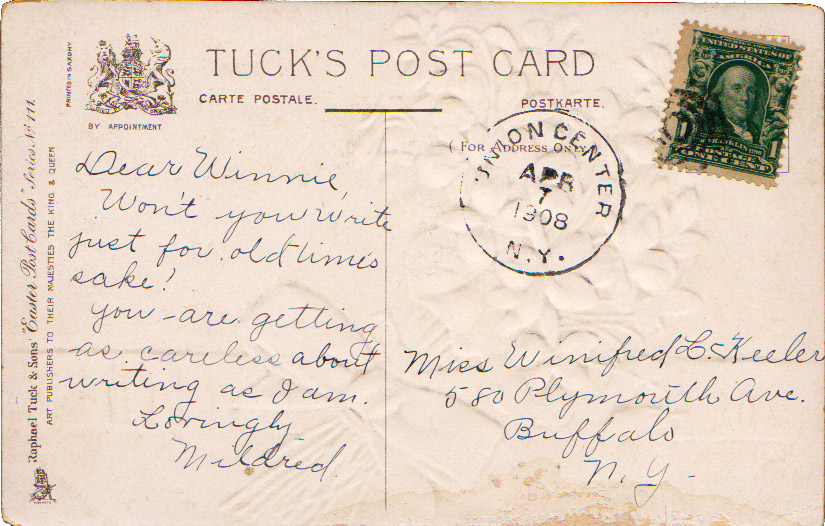 TUCK'S POST CARD
CARTE POSTALE.
POSTKARTE.
BY APPOINTMENT
PRINTED IN SAXONY
Raphael Tuck & Sons' "Easter Post Cards" Series No 111.
ART PUBLISHERS TO THEIR MAJESTIES THE KING & QUEEN
( For Address Only
UNION CENTER
APR
7
1908
N.Y.
UNITED STATES OF
AMERICA
FRANKLIN
POSTAGE
ONE CENT
1
Dear Winnie,
Won't you write
just for old time's
sake!
You are getting
as careless about
writing as I am.
Lovingly
Mildred.
Miss Winifred L. Keeler
580 Plymouth Ave.
Buffalo
N.Y.